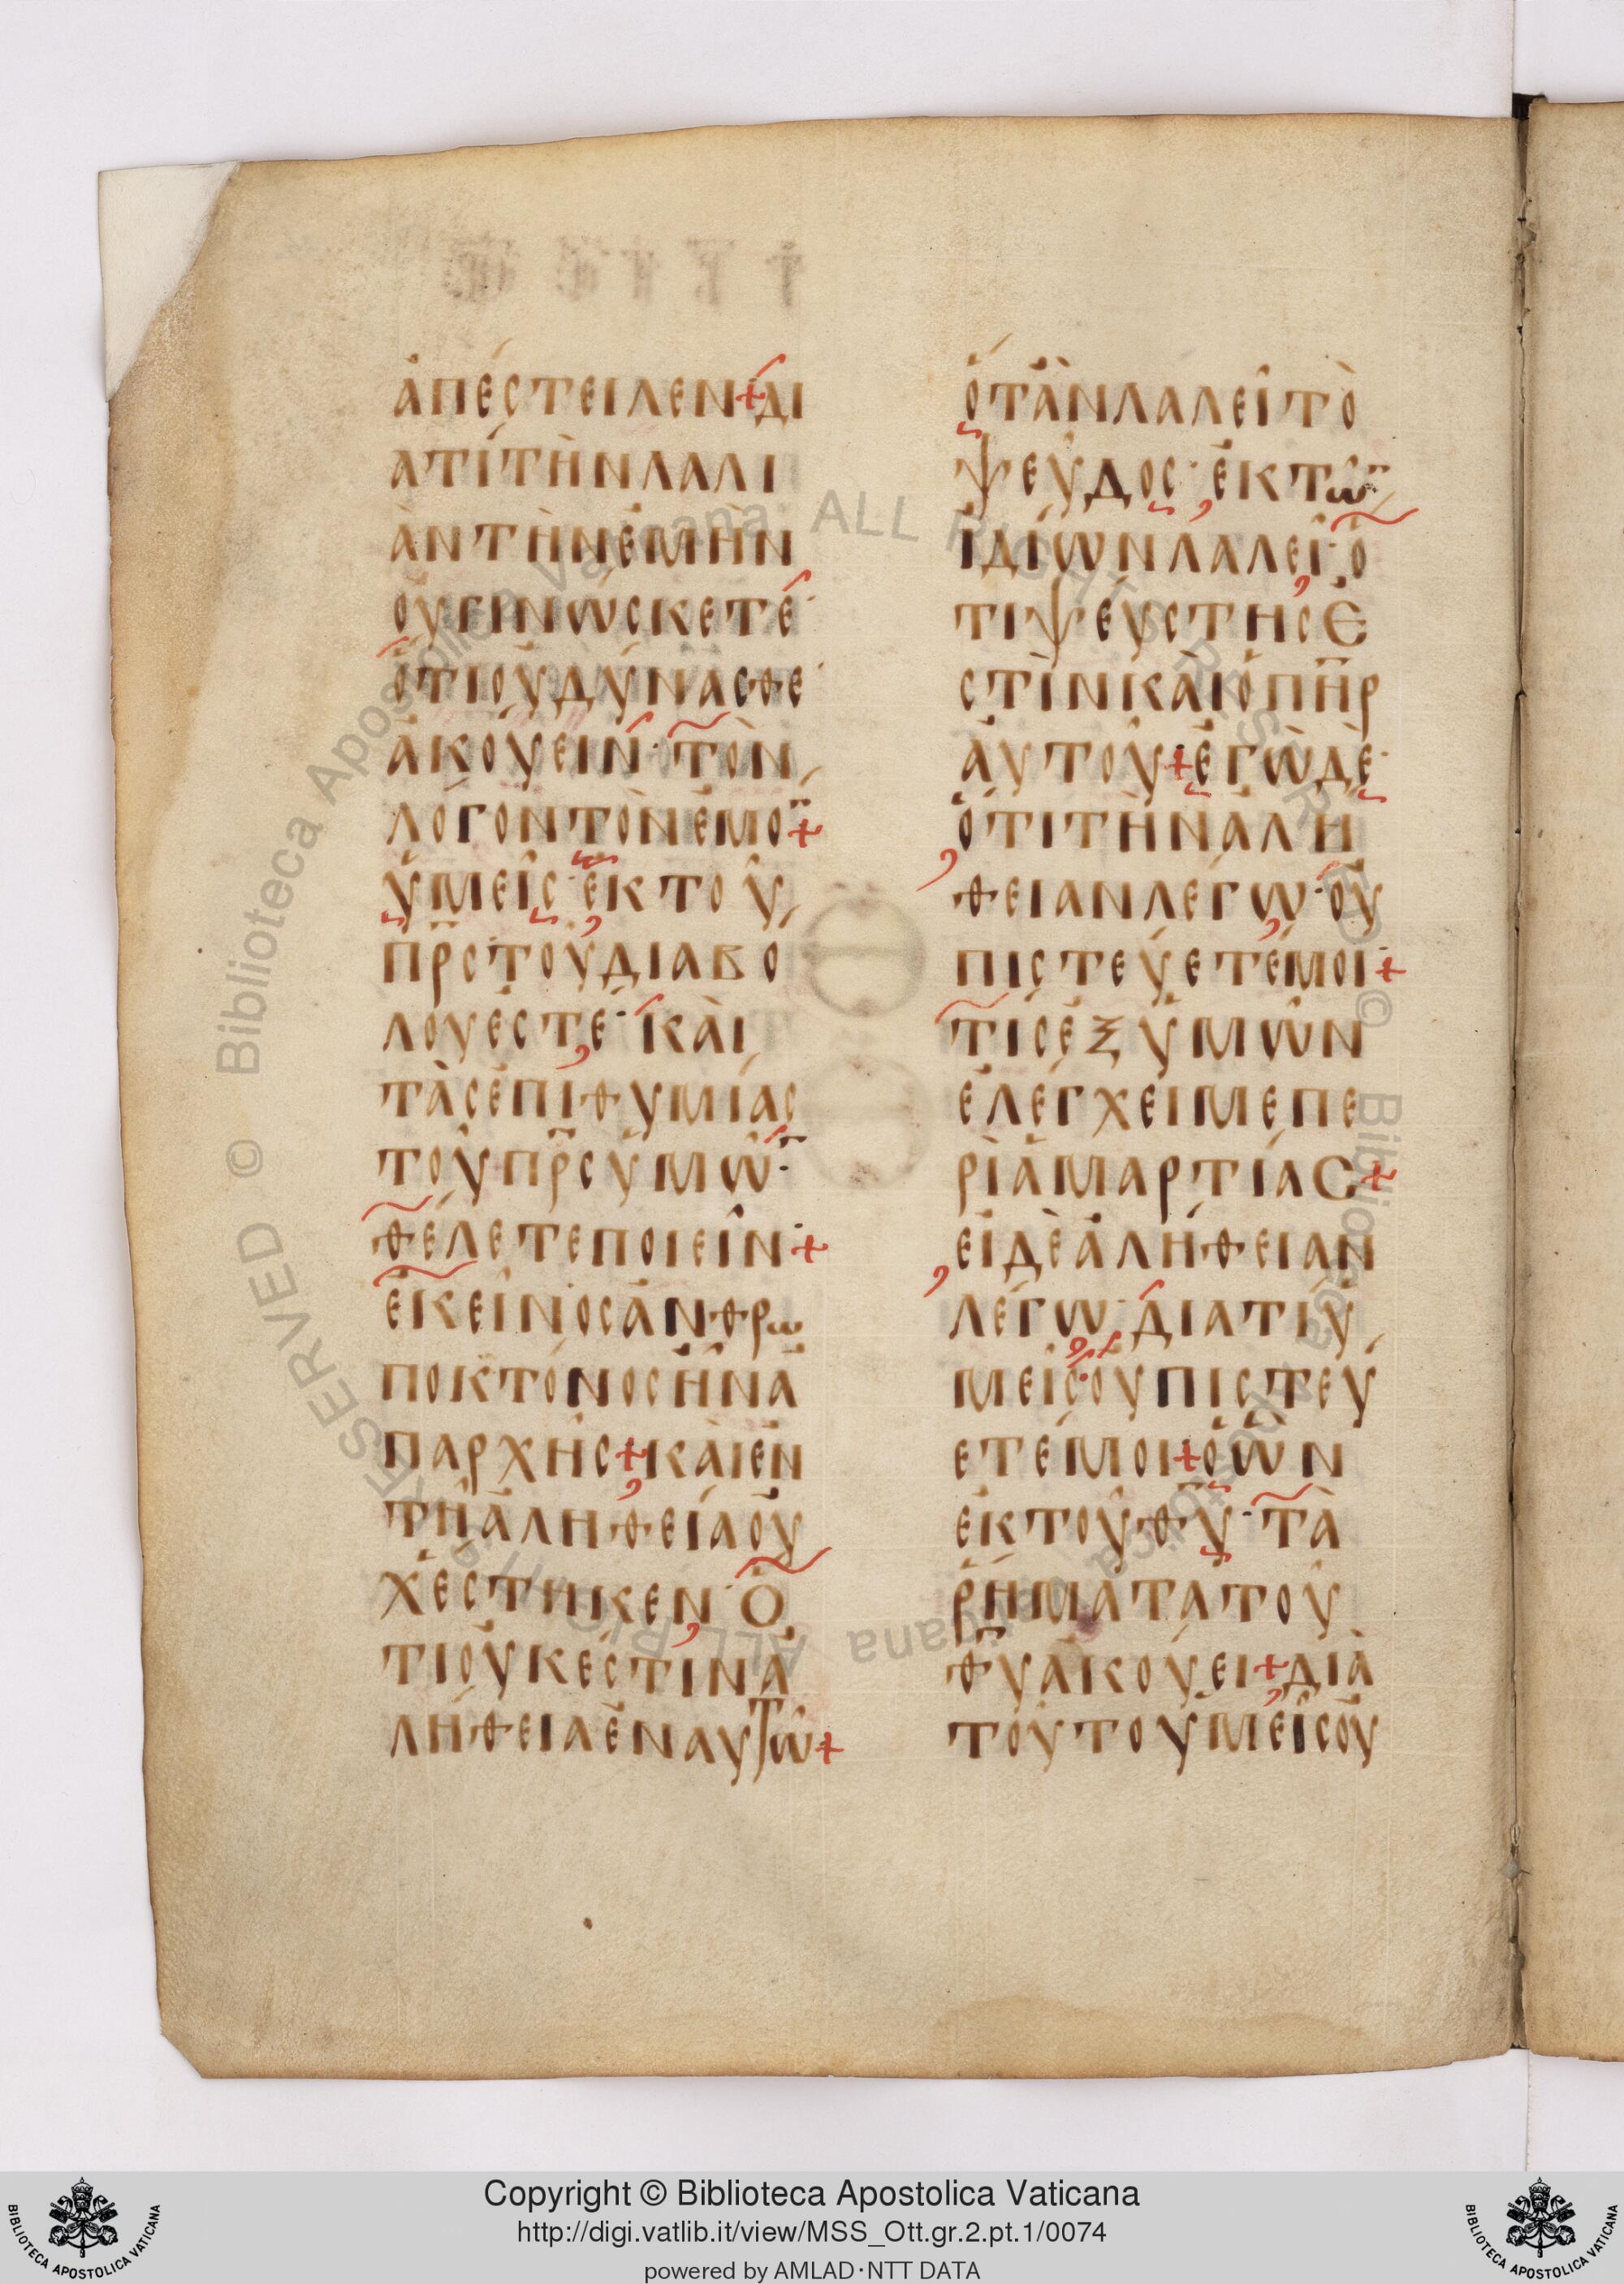 ἀπέστειλεν+δι
ατίτὴνλαλι
ὰντὴνἐμὴν
οὐγινώσκετε·
ὅτιοὐδύνασθε·
ἀκούειν·τὸν
λόγοντὸνἐμο̄+
ὑμεῖς·ἐκτοῦ
πρ̅ςτοῦδιαβο
λουἐστέ·κὰι
τὰςἐπιθυμίας
τοῦπρ̅ςὑμῶ̅·
θέλετεποιεῖν·+
ἐκεῖνοςἀνθρω
ποκτόνοςἦνἀ
παρχῆς+κὰιἐν
τῆἀληθείαοὐ
χἕστηκεν·ὅ
τιοὐκἔστινἀ
λήθειαἐναυτῶ+
ὅτἂνλαλεῖτὸ
ψεῦδος·ἐκτῶ̅
ἰδίωνλαλεῖ·ὅ
τιψεύστηςἐ
στὶνκὰιὁπη̅ρ
ἀυτοῦ+ἐγὼδὲ·
ὅτιτὴνἀλή
θειανλέγω·οὐ
πιστεύετέμοι·+
τίςἐξὑμῶν
ἐλέγχειμεπε
ρὶἁμαρτίας+
εἰδὲἀλήθειαν
λέγω·διατίὑ
μεῖςοὐπιστεύ
ετέμοι+ὁὢν
ἐκτοῦθυ̅·τὰ
ῥήματατοῦ
θυ̅ἀκούει+διὰ
τοῦτοὑμεῖςοὐ
Copyright © Biblioteca Apostolica Vaticana
http://digi.vatlib.it/view/MSS_Ott.gr.2.pt.1/0074
powered by AMLAD·NTT DATA